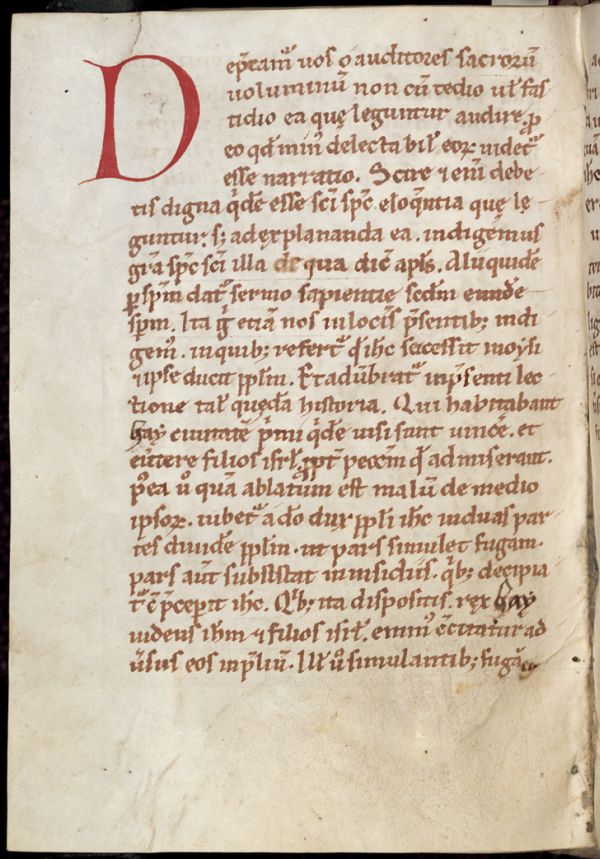 Dep̄cam᷒ uos o auditores sacrorū
uoluminū non cū tedio uƚ fas
tidio ea quę leguntur audire, ꝓ
eo qđ min᷒ delectabiƚ eoꝝ uidet᷒
esse narratio. Scire ⁊ eni᷒ debe
tis digna q̄dē esse sc̄i sp̄c eloq̄ntia quę le
guntur. s; ad explananda ea. indigem᷒us
gr̄a sp̄c sc̄i illa de qua dic̄ apƚs. Alii quidē
ꝑ sp̄m dat᷒ sermo sapientię scđm eundē
sp̄m. Ita ḡ etiā nos in locis p̄sentib; indi
gem᷒. in quib; refert᷒ qđ ihc̄ sccessit moysi
⁊ ipse ducit ppƚm. Et adūbrat᷒ in p̄senti lec
tione taƚ quędā historia. Qui habitabant
hay ciuitatē p̄mi q̄dē uisi sunt uincē. et
euertere filios isrƚ ꝓpt̄ pecc̄m qđ admiserant.
p᷒ea u᷒ quā ablatum est malū de medio
ipsoꝝ. iubet᷒ a do dux ppƚi ihc̄ in duas par
tes diuidē ppƚm. ut pars simulet fugam.
pars aut̄ subsistat in insidiis. qb; decipia
t᷒ p̄cepit ihc̄. Qb; ita dispositis. rex hay
uidens ihm̄ ⁊ filios isrƚ. emin᷒ c̄citatur ad
ūsus eos in p̄liū. Iƚƚ u᷒ simulantib; fugā